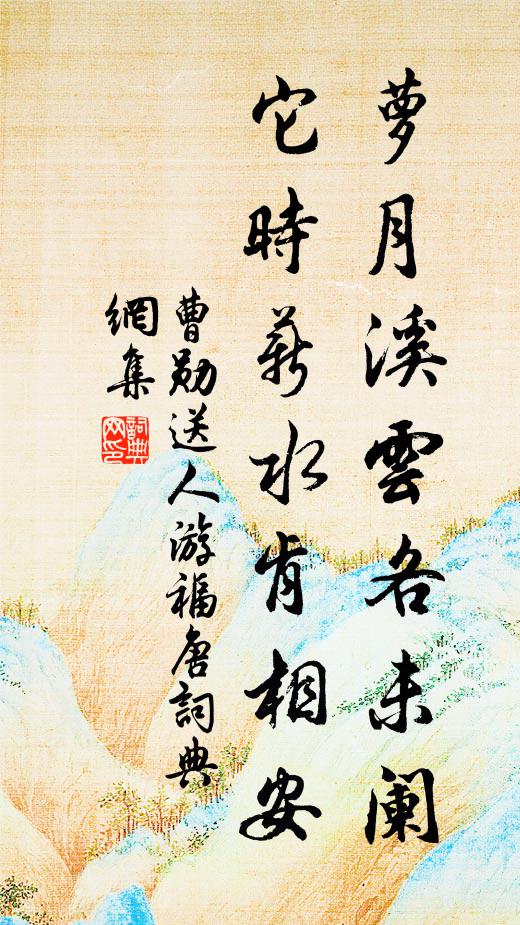 萝月溪雲各未阑
它時薪水肯相安
曹勋送人游福唐詞典
網集
詞典網印